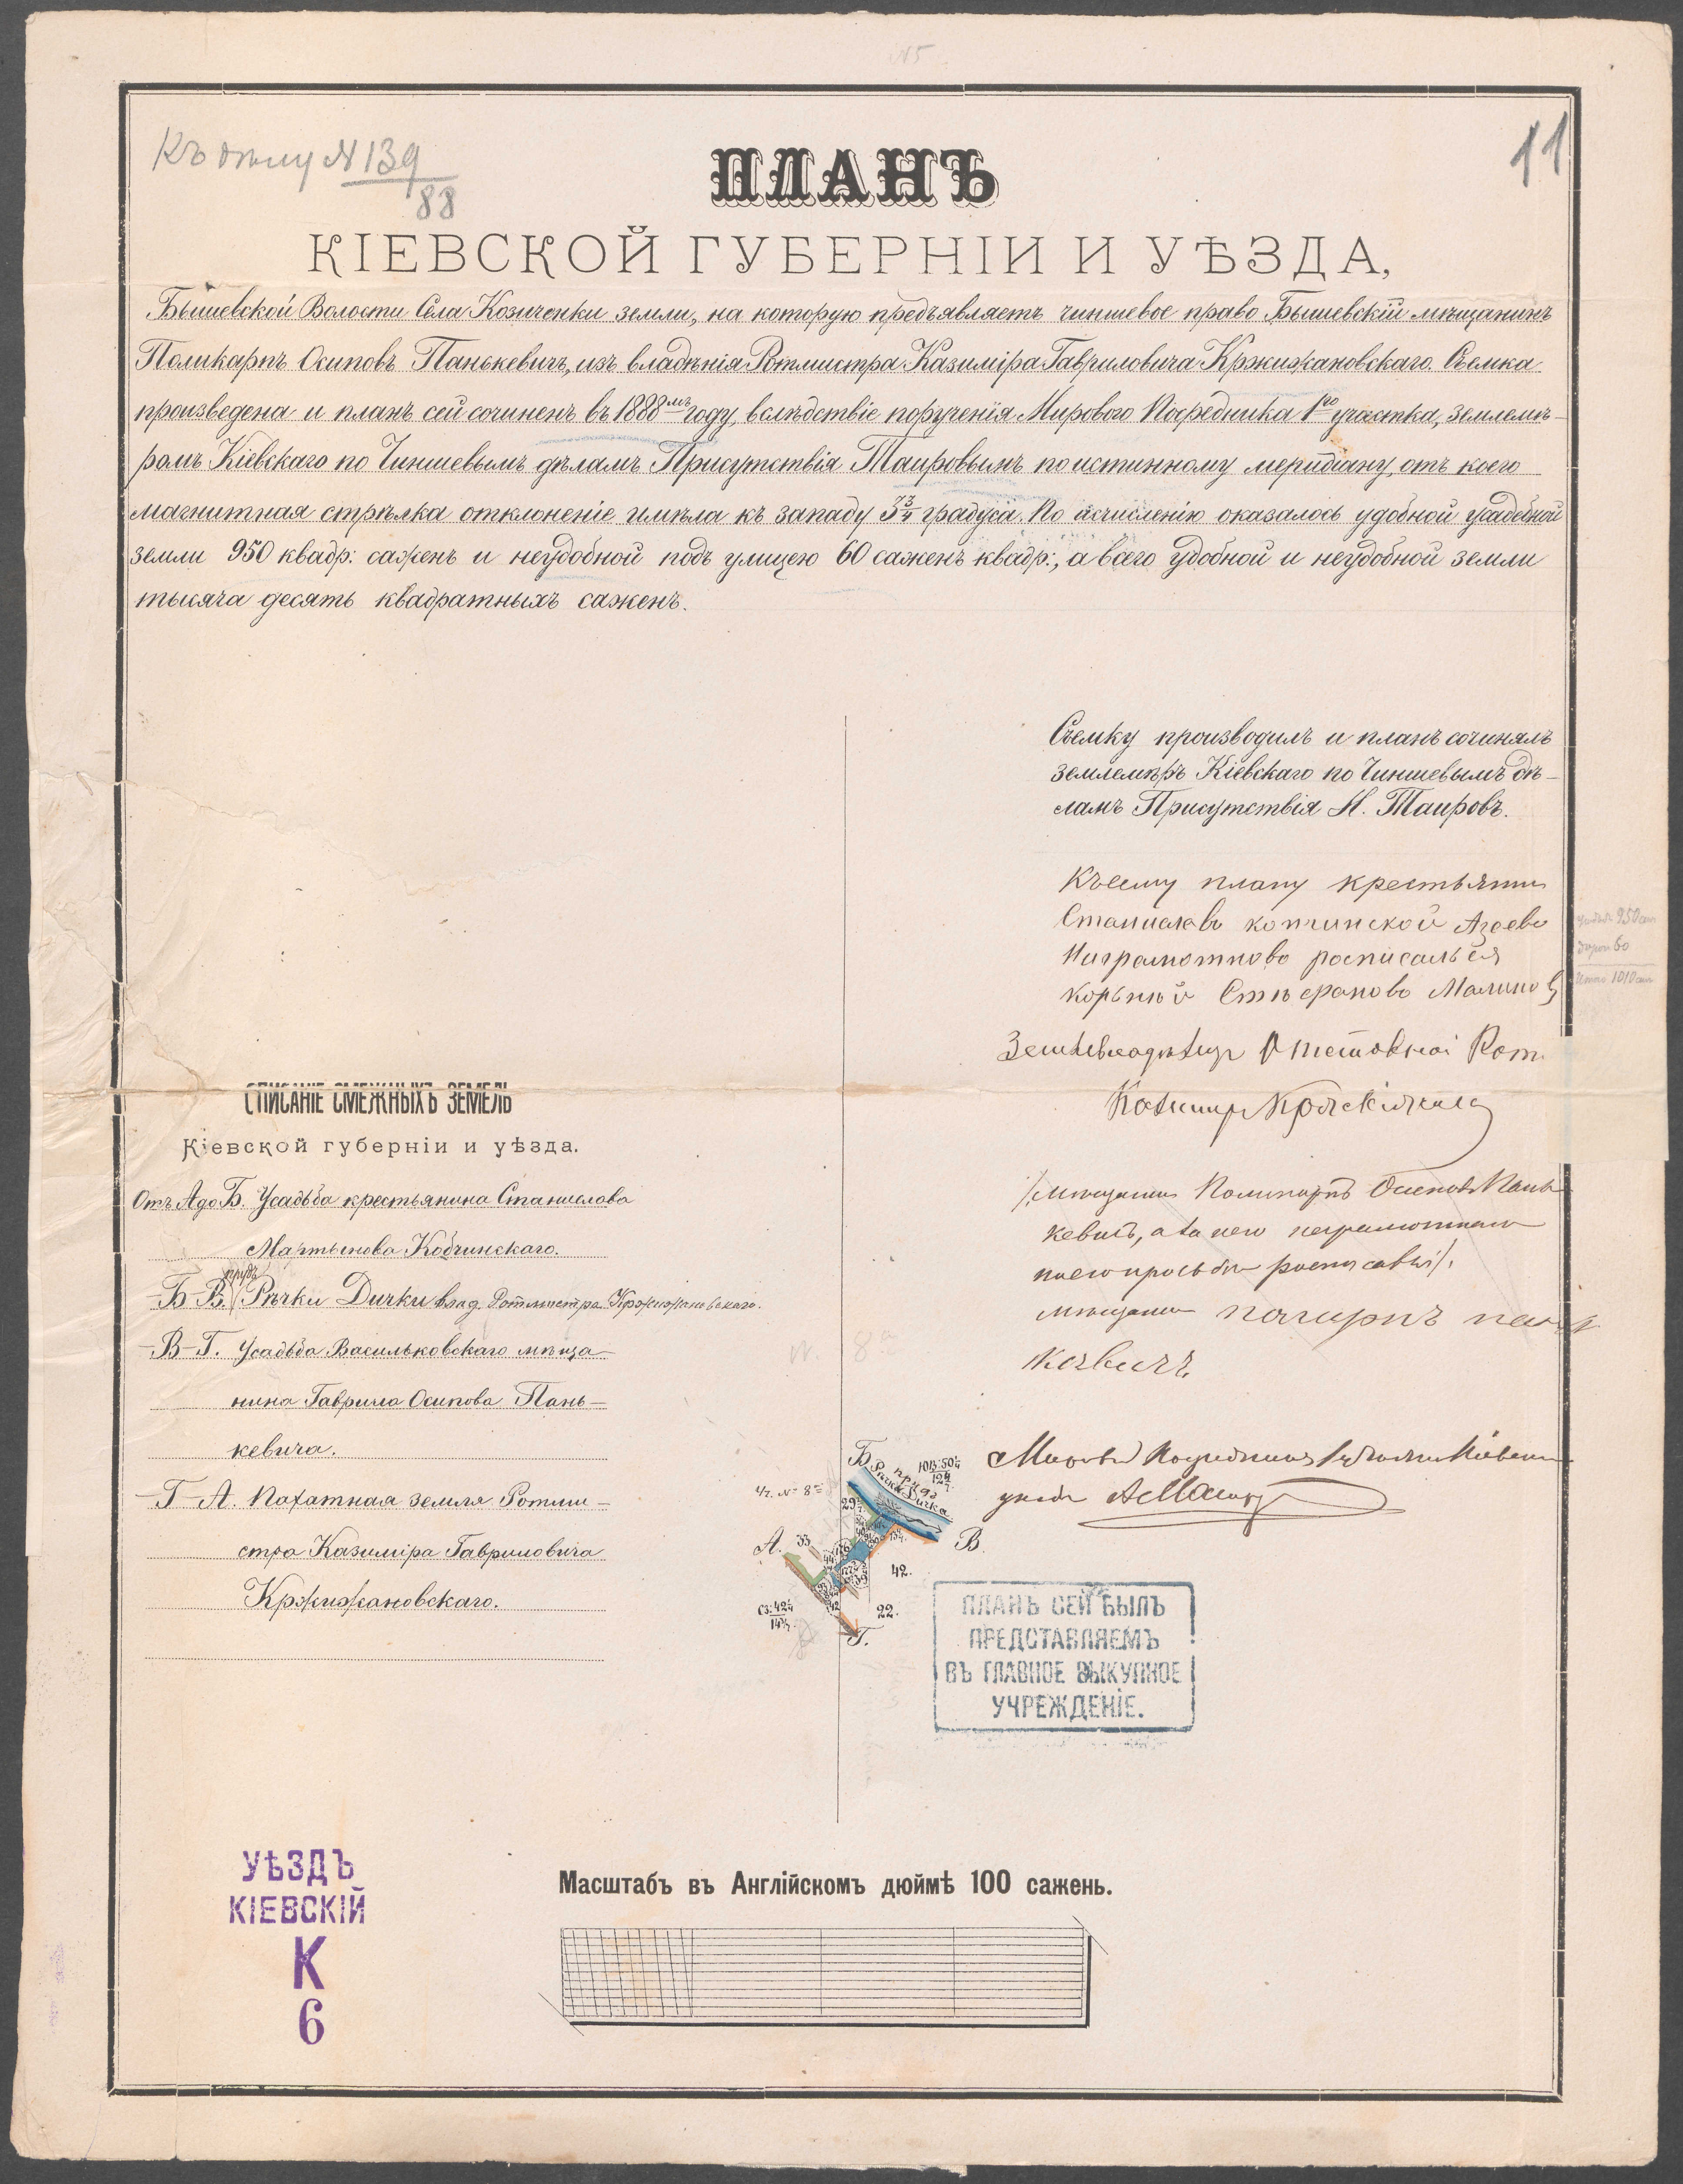 N5
Къ дѣлу № 139/88
11
ПЛАНЪ
КІЕВСКОЙ ГУБЕРНІИ И УѢЗДА,
Бышевской Волости Села Козиченки земли, на которую предъявляетъ чиншевое право Бышевскій мѣщанинъ
Поликарпъ Осиповъ Панькевичъ, изъ владѣнія Ротмистра Казиміра Гавриловича Кржижановскаго. Съемка
произведена и планъ сей сочиненъ въ 1888мъ году, вслѣдствіе порученія Мирового Посредника 1го участка, землемѣ-
ромъ Кіевскаго по Чиншевымъ дѣламъ Присутствія Таировымъ по истинному меридіану, отъ коего
магнитная стрѣлка отклоненіе имѣла къ западу 3 3/4 градуса. По исчисленію оказалось удобной усадебной
земли 950 квадр: сажень и неудобной подъ улицею 60 сажень квадр:, а всего удобной и неудобной земли
тысяча десять квадратныхъ сажень.
Съемку производилъ и планъ сочинялъ
землемѣръ Кіевскаго по Чиншевымъ дѣ-
ламъ Присутствія Н. Таировъ.
Къ сему плану крестьянинъ
Станиславъ
росписался
950 саж
60
Итого 1010 саж
Землевладѣлецъ Отставной Рот.
ОПИСАНІЕ СМЕЖНЫХЪ ЗЕМЕЛЬ
Кіевской губерніи и уѣзда.
Отъ А до Б. Усадьба крестьянина Станислава
Мартынова Кобчинскаго.
прудъ
Б-В. Рѣчки Дички влад. Ротмистра Кржижановскаго.
В-Г. Усадьба Васильковскаго мѣща-
нина Гаврила Осипова Пань-
кевича.
Г-А. Пахатная земля Ротми-
стра Казиміра Гавриловича
Кржижановскаго.
мѣщанинъ Поликарпъ Осиповъ Пань
кевичъ, а за него неграмотнаго
по его просьбѣ росписался
мѣщанинъ
кевичъ.
Мировой Посредникъ
N. 8а
Уч. № 8
Б.
прудъ
Рѣчки Дичка
В.
А.
33
29
42.
22.
Г.
ПЛАНЪ СЕЙ БЫЛЪ
ПРЕДСТАВЛЯЕМЪ
ВЪ ГЛАВНОЕ ВЫКУПНОЕ
УЧРЕЖДЕНІЕ.
УѢЗДЪ
КІЕВСКІЙ
К
6
Масштабъ въ Англійскомъ дюймѣ 100 сажень.